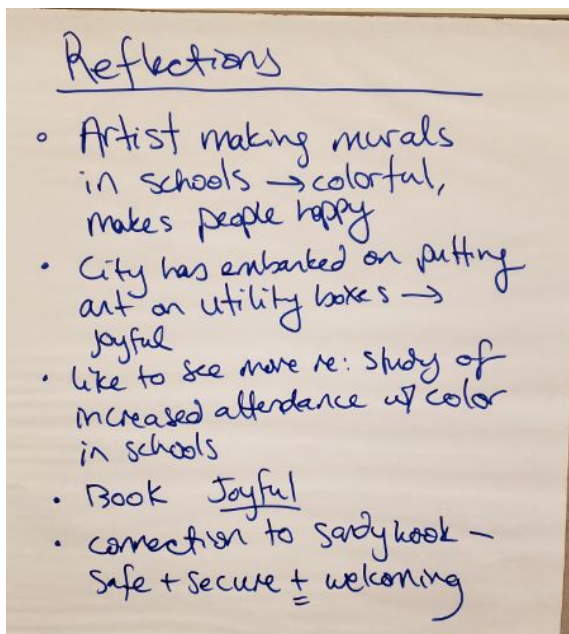 Reflections
◦ Artist making murals
in schools → colorful,
makes people happy
• City has embarked on putting
art on utility boxes →
joyful
• like to see more re: study of
increased attendance w/ color
in schools
• Book Joyful
• connection to Sandy Hook –
safe + secure + welcoming